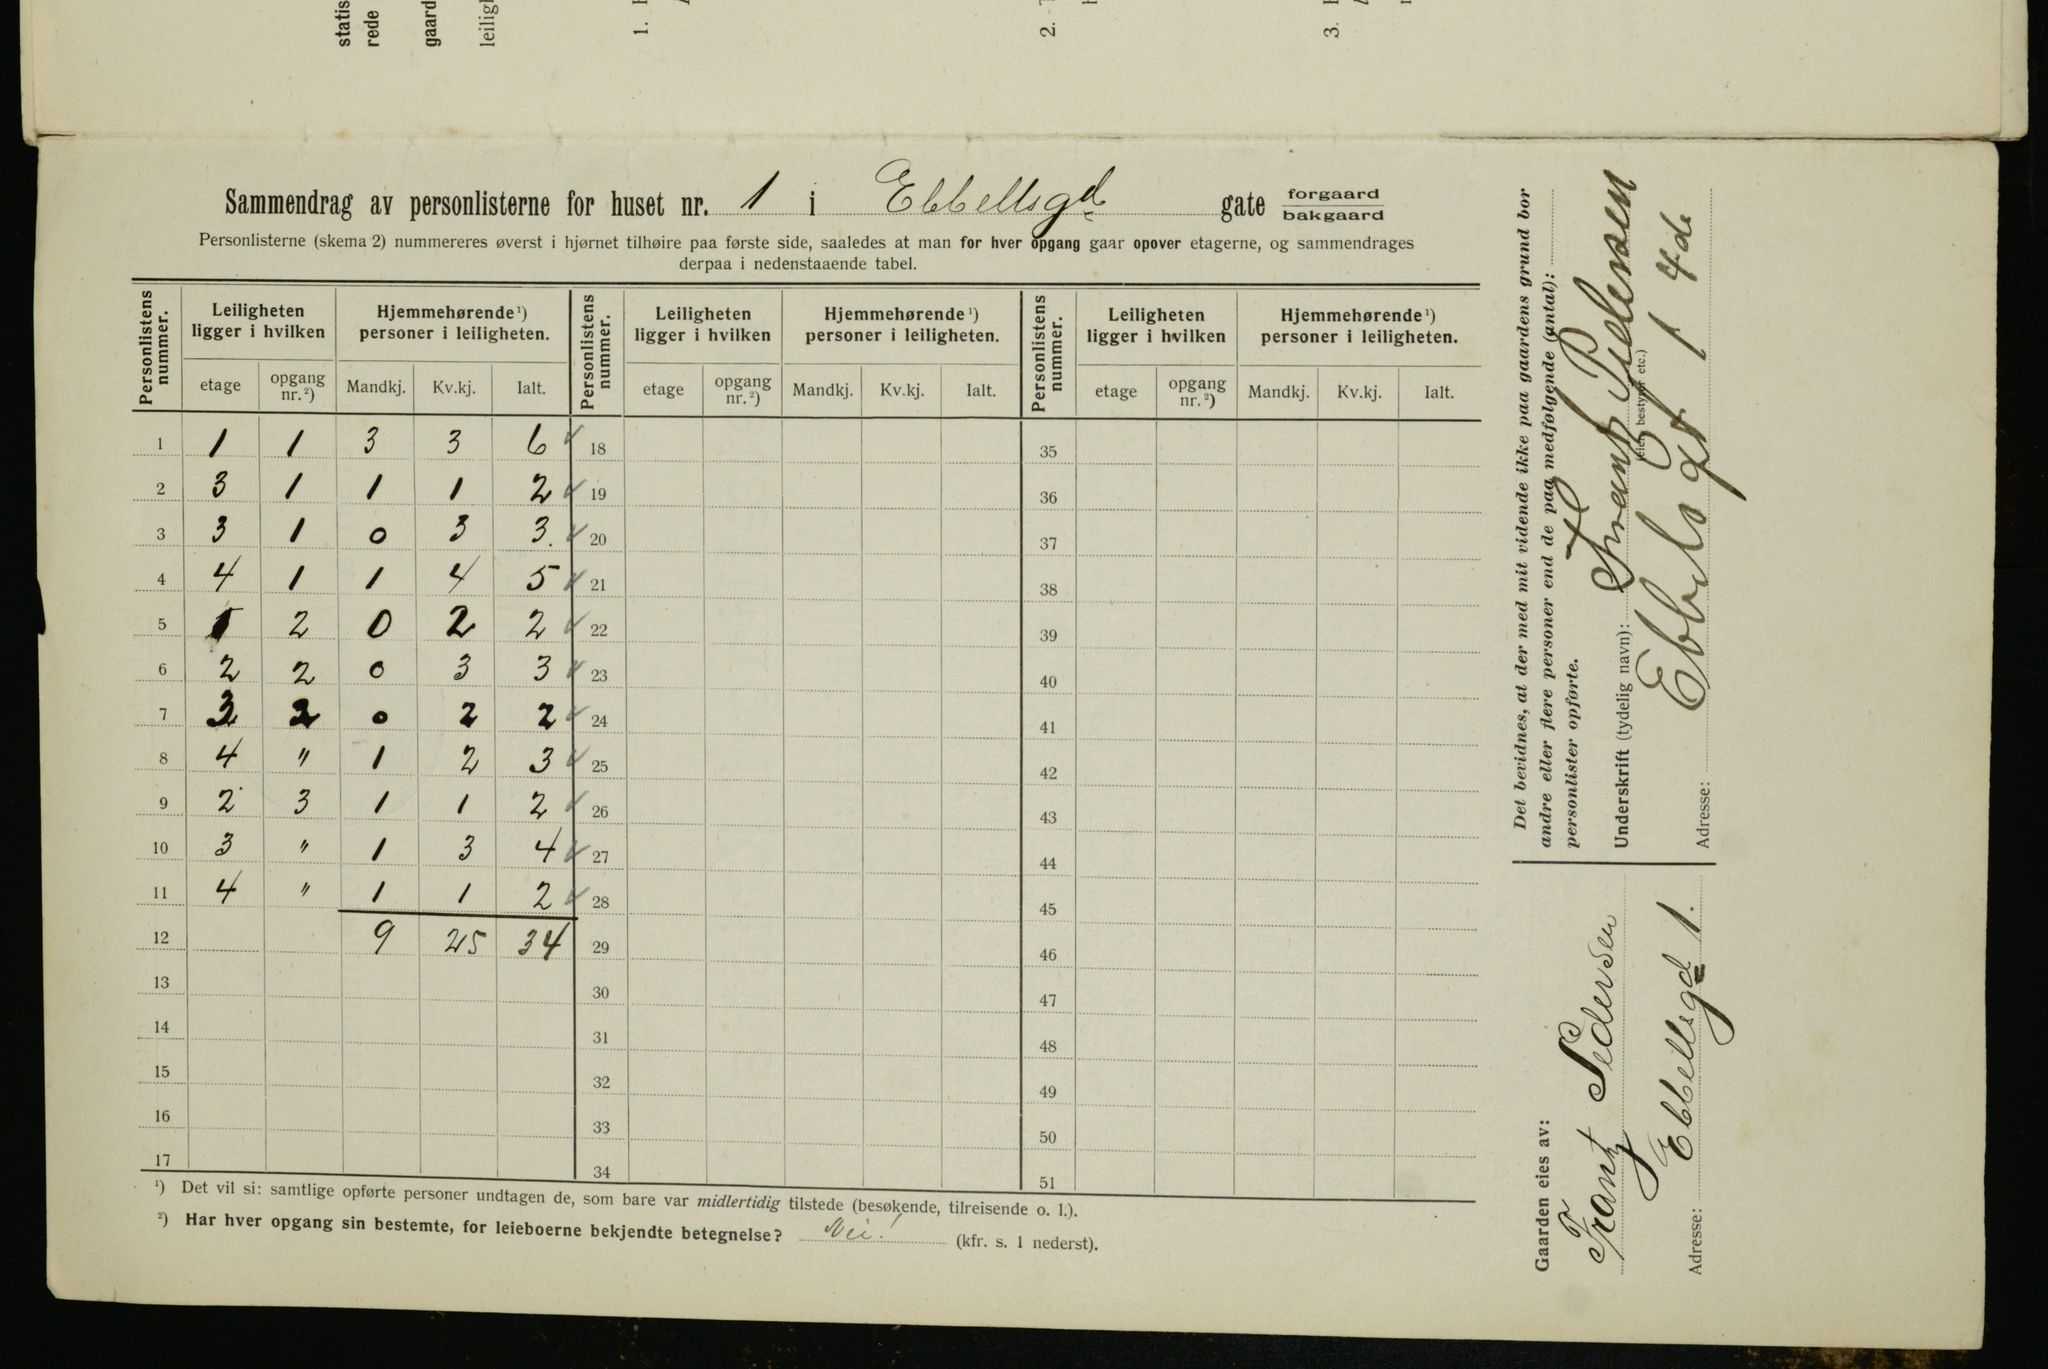 statis
rede
gaard
leiligh
1.
2.
3.
Sammendrag av personlisterne for huset nr. 1 i Ebbellsgd gate forgaard
bakgaard
Personlisterne (skema 2) nummereres øverst i hjørnet tilhøire paa første side, saaledes at man for hver opgang gaar opover etagerne, og sammendrages
derpaa i nedenstaaende tabel.
Personlistens nummer. Leiligheten ligger i hvilken Hjemmehørende¹) personer i leiligheten. Personlistens nummer. Leiligheten ligger i hvilken Hjemmehørende¹) personer i leiligheten. Personlistens nummer. Leiligheten ligger i hvilken Hjemmehørende¹) personer i leiligheten.
etage opgang nr.²) Mandkj. Kv.kj. Ialt. etage opgang nr.²) Mandkj. Kv.kj. Ialt. etage opgang nr.²) Mandkj. Kv.kj. Ialt.
1 1 1 3 3 6 ✓ 18 35
2 3 1 1 1 2 ✓ 19 36
3 3 1 0 3 3. ✓ 20 37
4 4 1 1 4 5 ✓ 21 38
5 1 2 0 2 2 ✓ 22 39
6 2 2 0 3 3 ✓ 23 40
7 3 2 0 2 2 ✓ 24 41
8 4 " 1 2 3 ✓ 25 42
9 2 3 1 1 2 ✓ 26 43
10 3 " 1 3 4 ✓ 27 44
11 4 " 1 1 2 ✓ 28 45
12 9 25 34 29 46
13 30 47
14 31 48
15 32 49
16 33 50
17 34 51
¹) Det vil si: samtlige opførte personer undtagen de, som bare var midlertidig tilstede (besøkende, tilreisende o. l.).
²) Har hver opgang sin bestemte, for leieboerne bekjendte betegnelse? Nei! (kfr. s. 1 nederst).
Det bevidnes, at der med mit vidende ikke paa gaardens grund bor
andre eller flere personer end de paa medfølgende (antal):
personlister opførte.
Underskrift (tydelig navn): Frantz Pedersen
(eier, bestyrer etc.)
Adresse: Ebbels gt 1 4de
Gaarden eies av:
Frantz Pedersen
Adresse: Ebbellsgd 1.